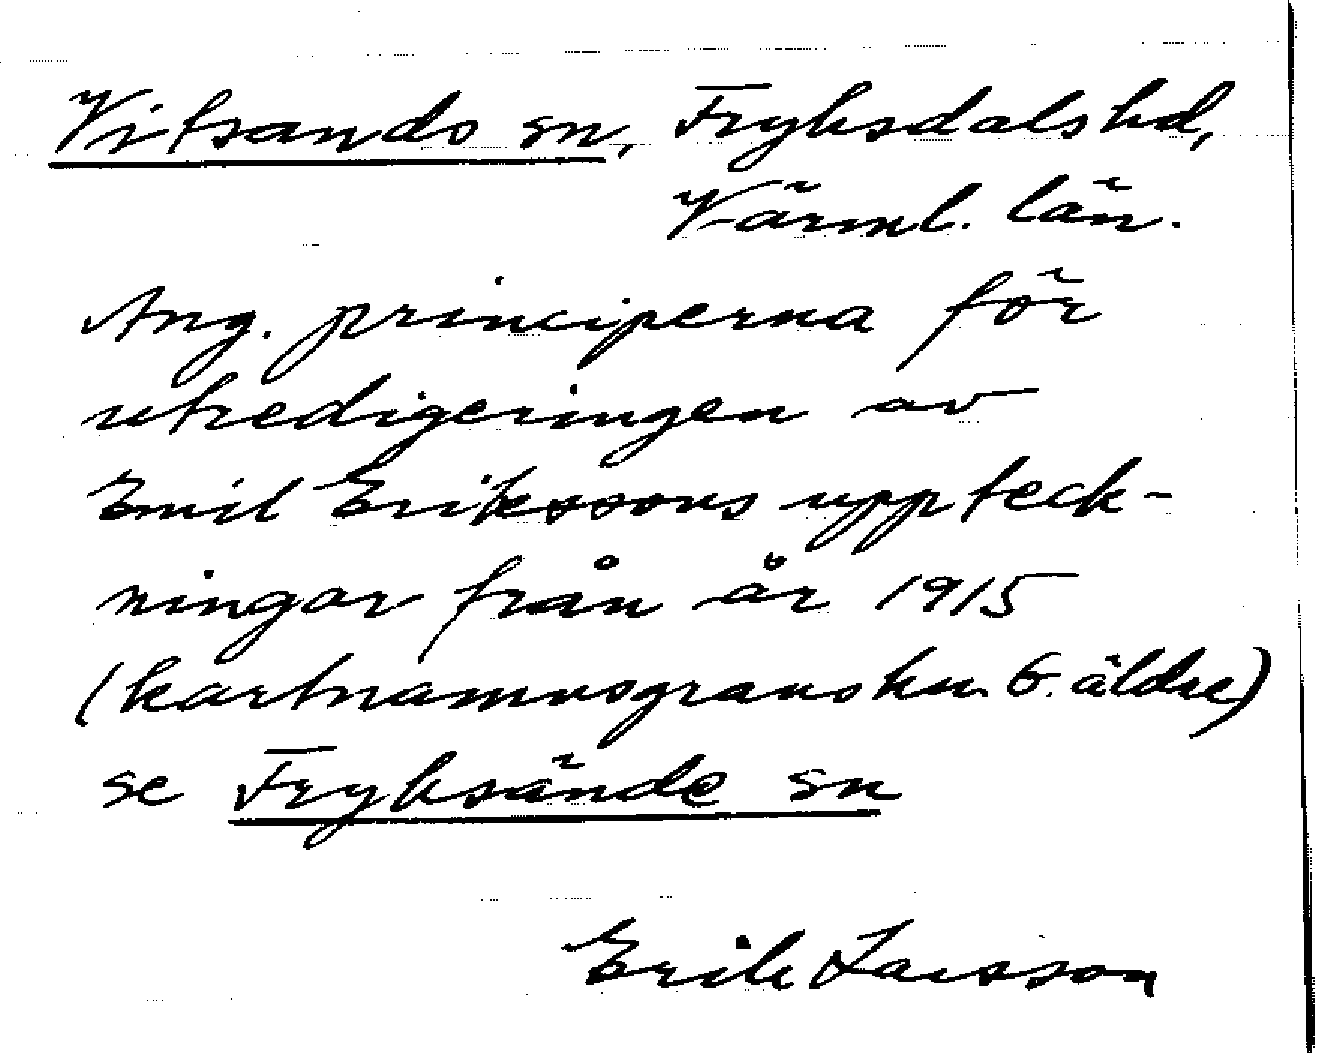 Vitsands sn, Fryksdals hd,
Värml. län.
Ang. principerna för
utredigeringen av
Emil Erikssons uppteck-
ningar från år 1915
(kartnamnsgranskn. G. äldre)
se Fryksände sn
Erik Larsson